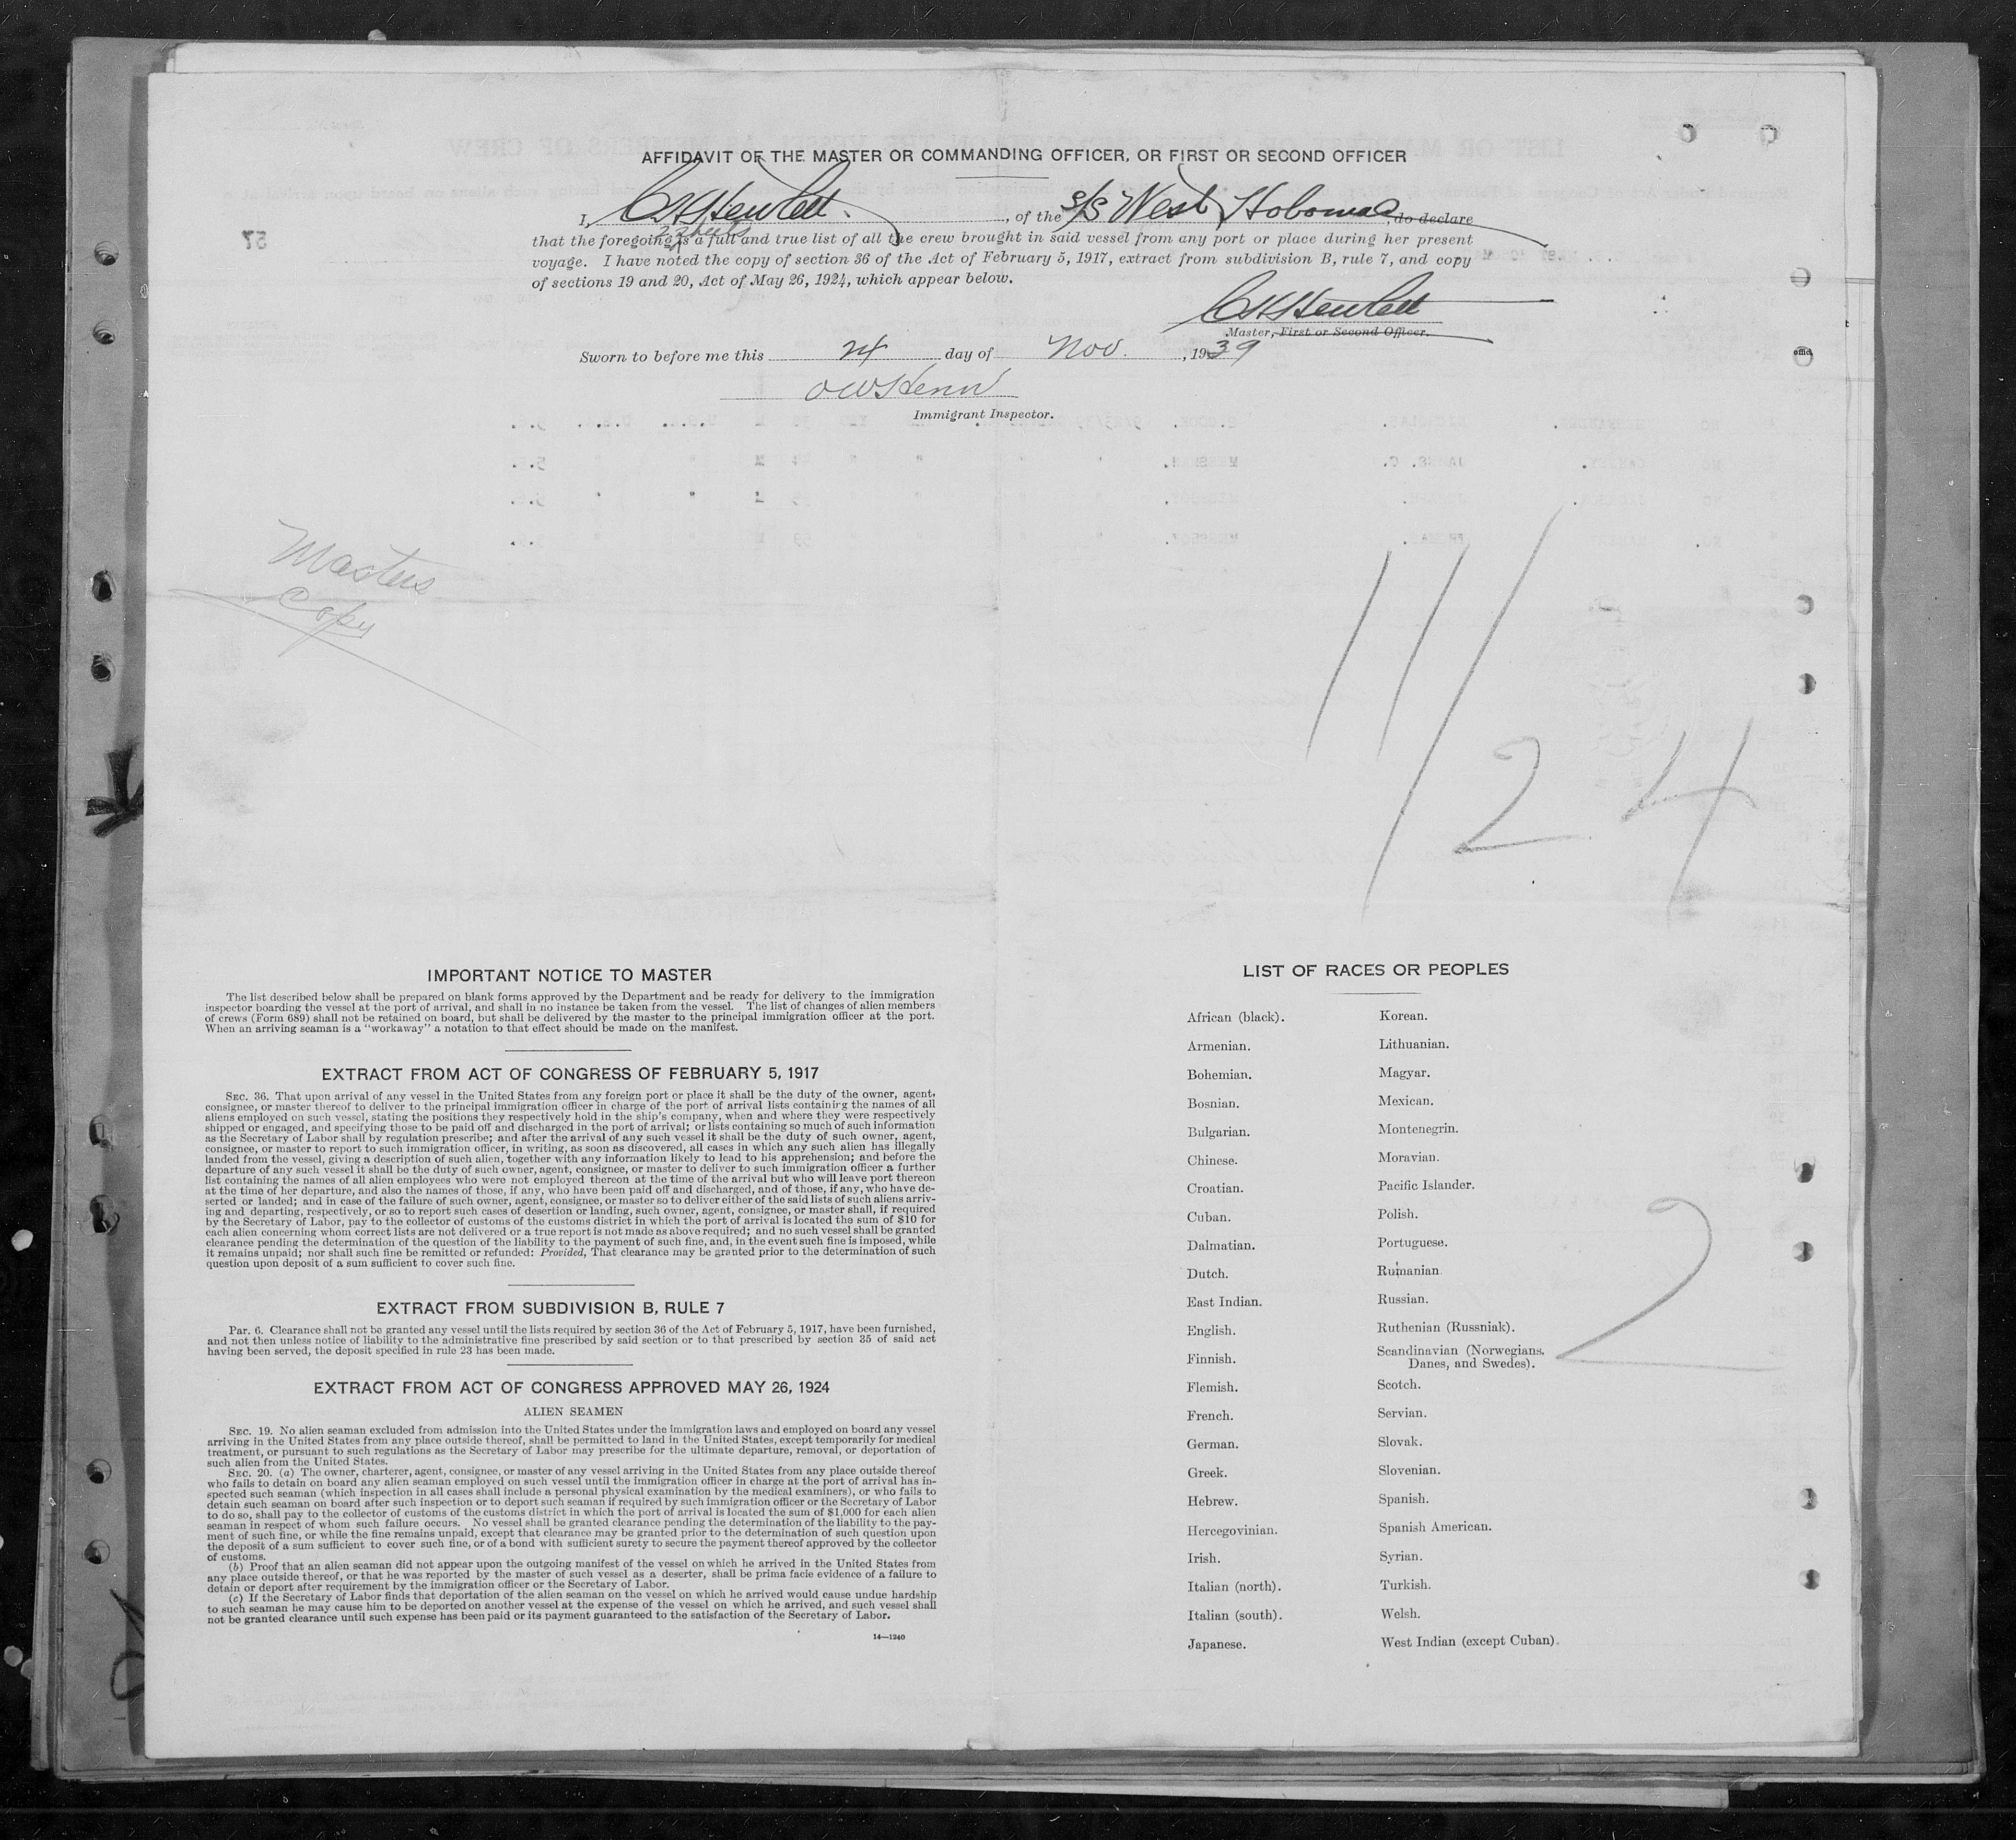 AFFIDAVIT OF THE MASTER OR COMMANDING OFFICER, OR FIRST OR SECOND OFFICER
I, C H Hewlett, of the S/S West Hobomac, do declare
2 sheets
that the foregoing is a full and true list of all the crew brought in said vessel from any port or place during her present
voyage. I have noted the copy of section 36 of the Act of February 5, 1917, extract from subdivision B, rule 7, and copy
of sections 19 and 20, Act of May 26, 1924, which appear below.
C H Hewlett
Master, First or Second Officer.
Sworn to before me this 24 day of Nov., 1939
Immigrant Inspector.
Masters
Copy
11/24
IMPORTANT NOTICE TO MASTER
The list described below shall be prepared on blank forms approved by the Department and be ready for delivery to the immigration
inspector boarding the vessel at the port of arrival, and shall in no instance be taken from the vessel. The list of changes of alien members
of crews (Form 689) shall not be retained on board, but shall be delivered by the master to the principal immigration officer at the port.
When an arriving seaman is a "workaway" a notation to that effect should be made on the manifest.
EXTRACT FROM ACT OF CONGRESS OF FEBRUARY 5, 1917
SEC. 36. That upon arrival of any vessel in the United States from any foreign port or place it shall be the duty of the owner, agent,
consignee, or master thereof to deliver to the principal immigration officer in charge of the port of arrival lists containing the names of all
aliens employed on such vessel, stating the positions they respectively hold in the ship's company, when and where they were respectively
shipped or engaged, and specifying those to be paid off and discharged in the port of arrival; or lists containing so much of such information
as the Secretary of Labor shall by regulation prescribe; and after the arrival of any such vessel it shall be the duty of such owner, agent,
consignee, or master to report to such immigration officer, in writing, as soon as discovered, all cases in which any such alien has illegally
landed from the vessel, giving a description of such alien, together with any information likely to lead to his apprehension; and before the
departure of any such vessel it shall be the duty of such owner, agent, consignee, or master to deliver to such immigration officer a further
list containing the names of all alien employees who were not employed thereon at the time of the arrival but who will leave port thereon
at the time of her departure, and also the names of those, if any, who have been paid off and discharged, and of those, if any, who have de-
serted or landed; and in case of the failure of such owner, agent, consignee, or master so to deliver either of the said lists of such aliens arriv-
ing and departing, respectively, or so to report such cases of desertion or landing, such owner, agent, consignee, or master shall, if required
by the Secretary of Labor, pay to the collector of customs of the customs district in which the port of arrival is located the sum of $10 for
each alien concerning whom correct lists are not delivered or a true report is not made as above required; and no such vessel shall be granted
clearance pending the determination of the question of the liability to the payment of such fine, and, in the event such fine is imposed, while
it remains unpaid; nor shall such fine be remitted or refunded: Provided, That clearance may be granted prior to the determination of such
question upon deposit of a sum sufficient to cover such fine.
EXTRACT FROM SUBDIVISION B, RULE 7
Par. 6. Clearance shall not be granted any vessel until the lists required by section 36 of the Act of February 5, 1917, have been furnished,
and not then unless notice of liability to the administrative fine prescribed by said section or to that prescribed by section 35 of said act
having been served, the deposit specified in rule 23 has been made.
EXTRACT FROM ACT OF CONGRESS APPROVED MAY 26, 1924
ALIEN SEAMEN
SEC. 19. No alien seaman excluded from admission into the United States under the immigration laws and employed on board any vessel
arriving in the United States from any place outside thereof, shall be permitted to land in the United States, except temporarily for medical
treatment, or pursuant to such regulations as the Secretary of Labor may prescribe for the ultimate departure, removal, or deportation of
such alien from the United States.
SEC. 20. (a) The owner, charterer, agent, consignee, or master of any vessel arriving in the United States from any place outside thereof
who fails to detain on board any alien seaman employed on such vessel until the immigration officer in charge at the port of arrival has in-
spected such seaman (which inspection in all cases shall include a personal physical examination by the medical examiners), or who fails to
detain such seaman on board after such inspection or to deport such seaman if required by such immigration officer or the Secretary of Labor
to do so, shall pay to the collector of customs of the customs district in which the port of arrival is located the sum of $1,000 for each alien
seaman in respect of whom such failure occurs. No vessel shall be granted clearance pending the determination of the liability to the pay-
ment of such fine, or while the fine remains unpaid, except that clearance may be granted prior to the determination of such question upon
the deposit of a sum sufficient to cover such fine, or of a bond with sufficient surety to secure the payment thereof approved by the collector
of customs.
(b) Proof that an alien seaman did not appear upon the outgoing manifest of the vessel on which he arrived in the United States from
any place outside thereof, or that he was reported by the master of such vessel as a deserter, shall be prima facie evidence of a failure to
detain or deport after requirement by the immigration officer or the Secretary of Labor.
(c) If the Secretary of Labor finds that deportation of the alien seaman on the vessel on which he arrived would cause undue hardship
to such seaman he may cause him to be deported on another vessel at the expense of the vessel on which he arrived, and such vessel shall
not be granted clearance until such expense has been paid or its payment guaranteed to the satisfaction of the Secretary of Labor.
14—1240
LIST OF RACES OR PEOPLES
African (black).
Armenian.
Bohemian.
Bosnian.
Bulgarian.
Chinese.
Croatian.
Cuban.
Dalmatian.
Dutch.
East Indian.
English.
Finnish.
Flemish.
French.
German.
Greek.
Hebrew.
Hercegovinian.
Irish.
Italian (north).
Italian (south).
Japanese.
Korean.
Lithuanian.
Magyar.
Mexican.
Montenegrin.
Moravian.
Pacific Islander.
Polish.
Portuguese.
Rumanian.
Russian.
Ruthenian (Russniak).
Scandinavian (Norwegians,
Danes, and Swedes).
Scotch.
Servian.
Slovak.
Slovenian.
Spanish.
Spanish American.
Syrian.
Turkish.
Welsh.
West Indian (except Cuban).
2